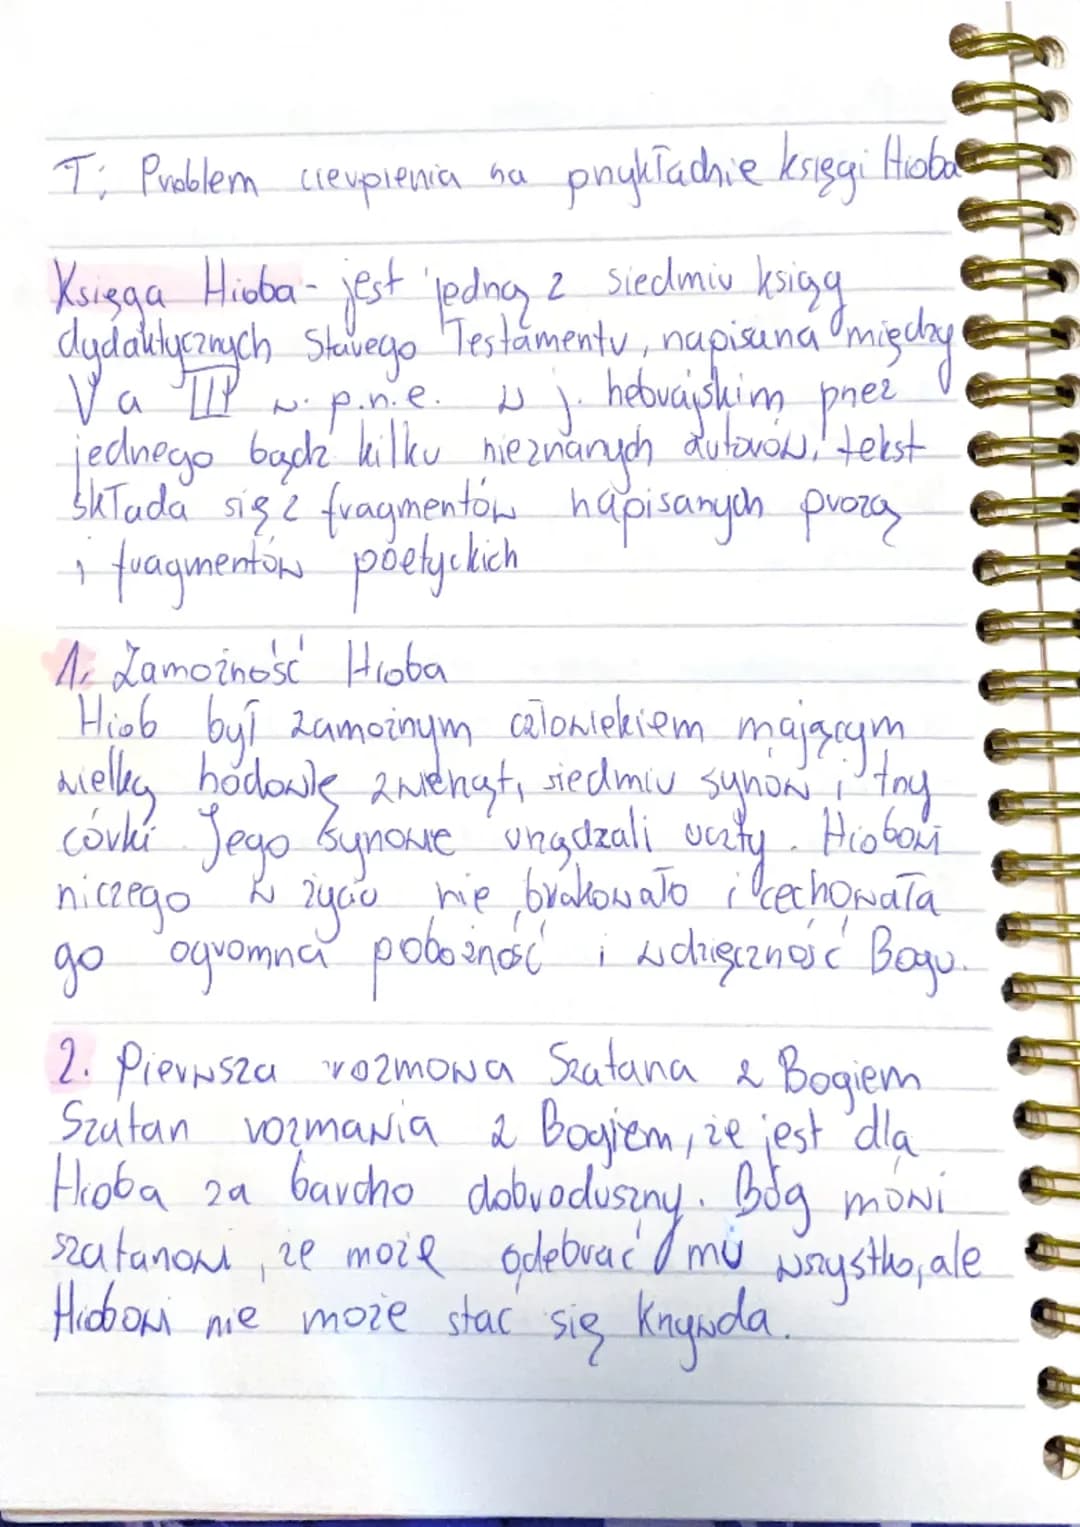 T: Problem cierpienia na przykładzie księgi Hioba
Księga Hioba - jest jedną z siedmiu ksiąg
dydaktycznych Starego Testamentu, napisana między
V a III w. p.n.e. w j. hebrajskim przez
jednego bądź kilku nieznanych autorów, tekst
składa się z fragmentów napisanych prozą
i fragmentów poetyckich
1. Zamożność Hioba
Hiob był zamożnym człowiekiem mającym
wielką hodowlę zwierząt, siedmiu synów i trzy
córki Jego synowie urządzali uczty. Hiobowi
niczego w życiu nie brakowało i cechowała
go ogromna pobożność i wdzięczność Bogu.
2. Pierwsza rozmowa Szatana z Bogiem
Szatan rozmawia z Bogiem, że jest dla
Hioba za bardzo dobroduszny. Bóg mówi
szatanowi, że może odebrać mu wszystko, ale
Hiobowi nie może stać się krzywda.